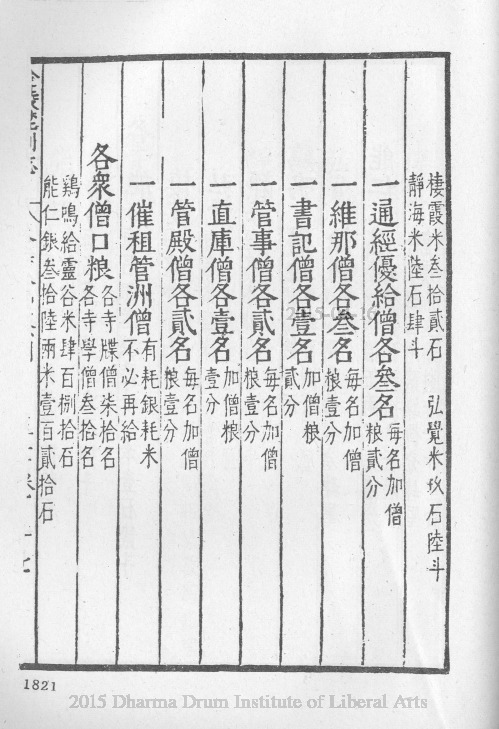 棲霞米叁拾貳石　弘覺米玖石陸斗
靜海米陸石肆斗
一通經優給僧各叁名每名加僧
粮貳分
一維那僧各叁名每名加僧
粮壹分
一書記僧各壹名加僧粮
貳分
一管事僧各貳名每名加僧
粮壹分
一直庫僧各壹名加僧粮
壹分
一管殿僧各貳名每名加僧
粮壹分
一催租管洲僧有耗銀耗米
不必再給
各衆僧口粮各寺牒僧柒拾名
各寺學僧叁拾名
鷄鳴給靈谷米肆百捌拾石
能仁銀叁拾陸兩米壹百貳拾石
1821
2015 Dharma Drum Institute of Liberal Arts